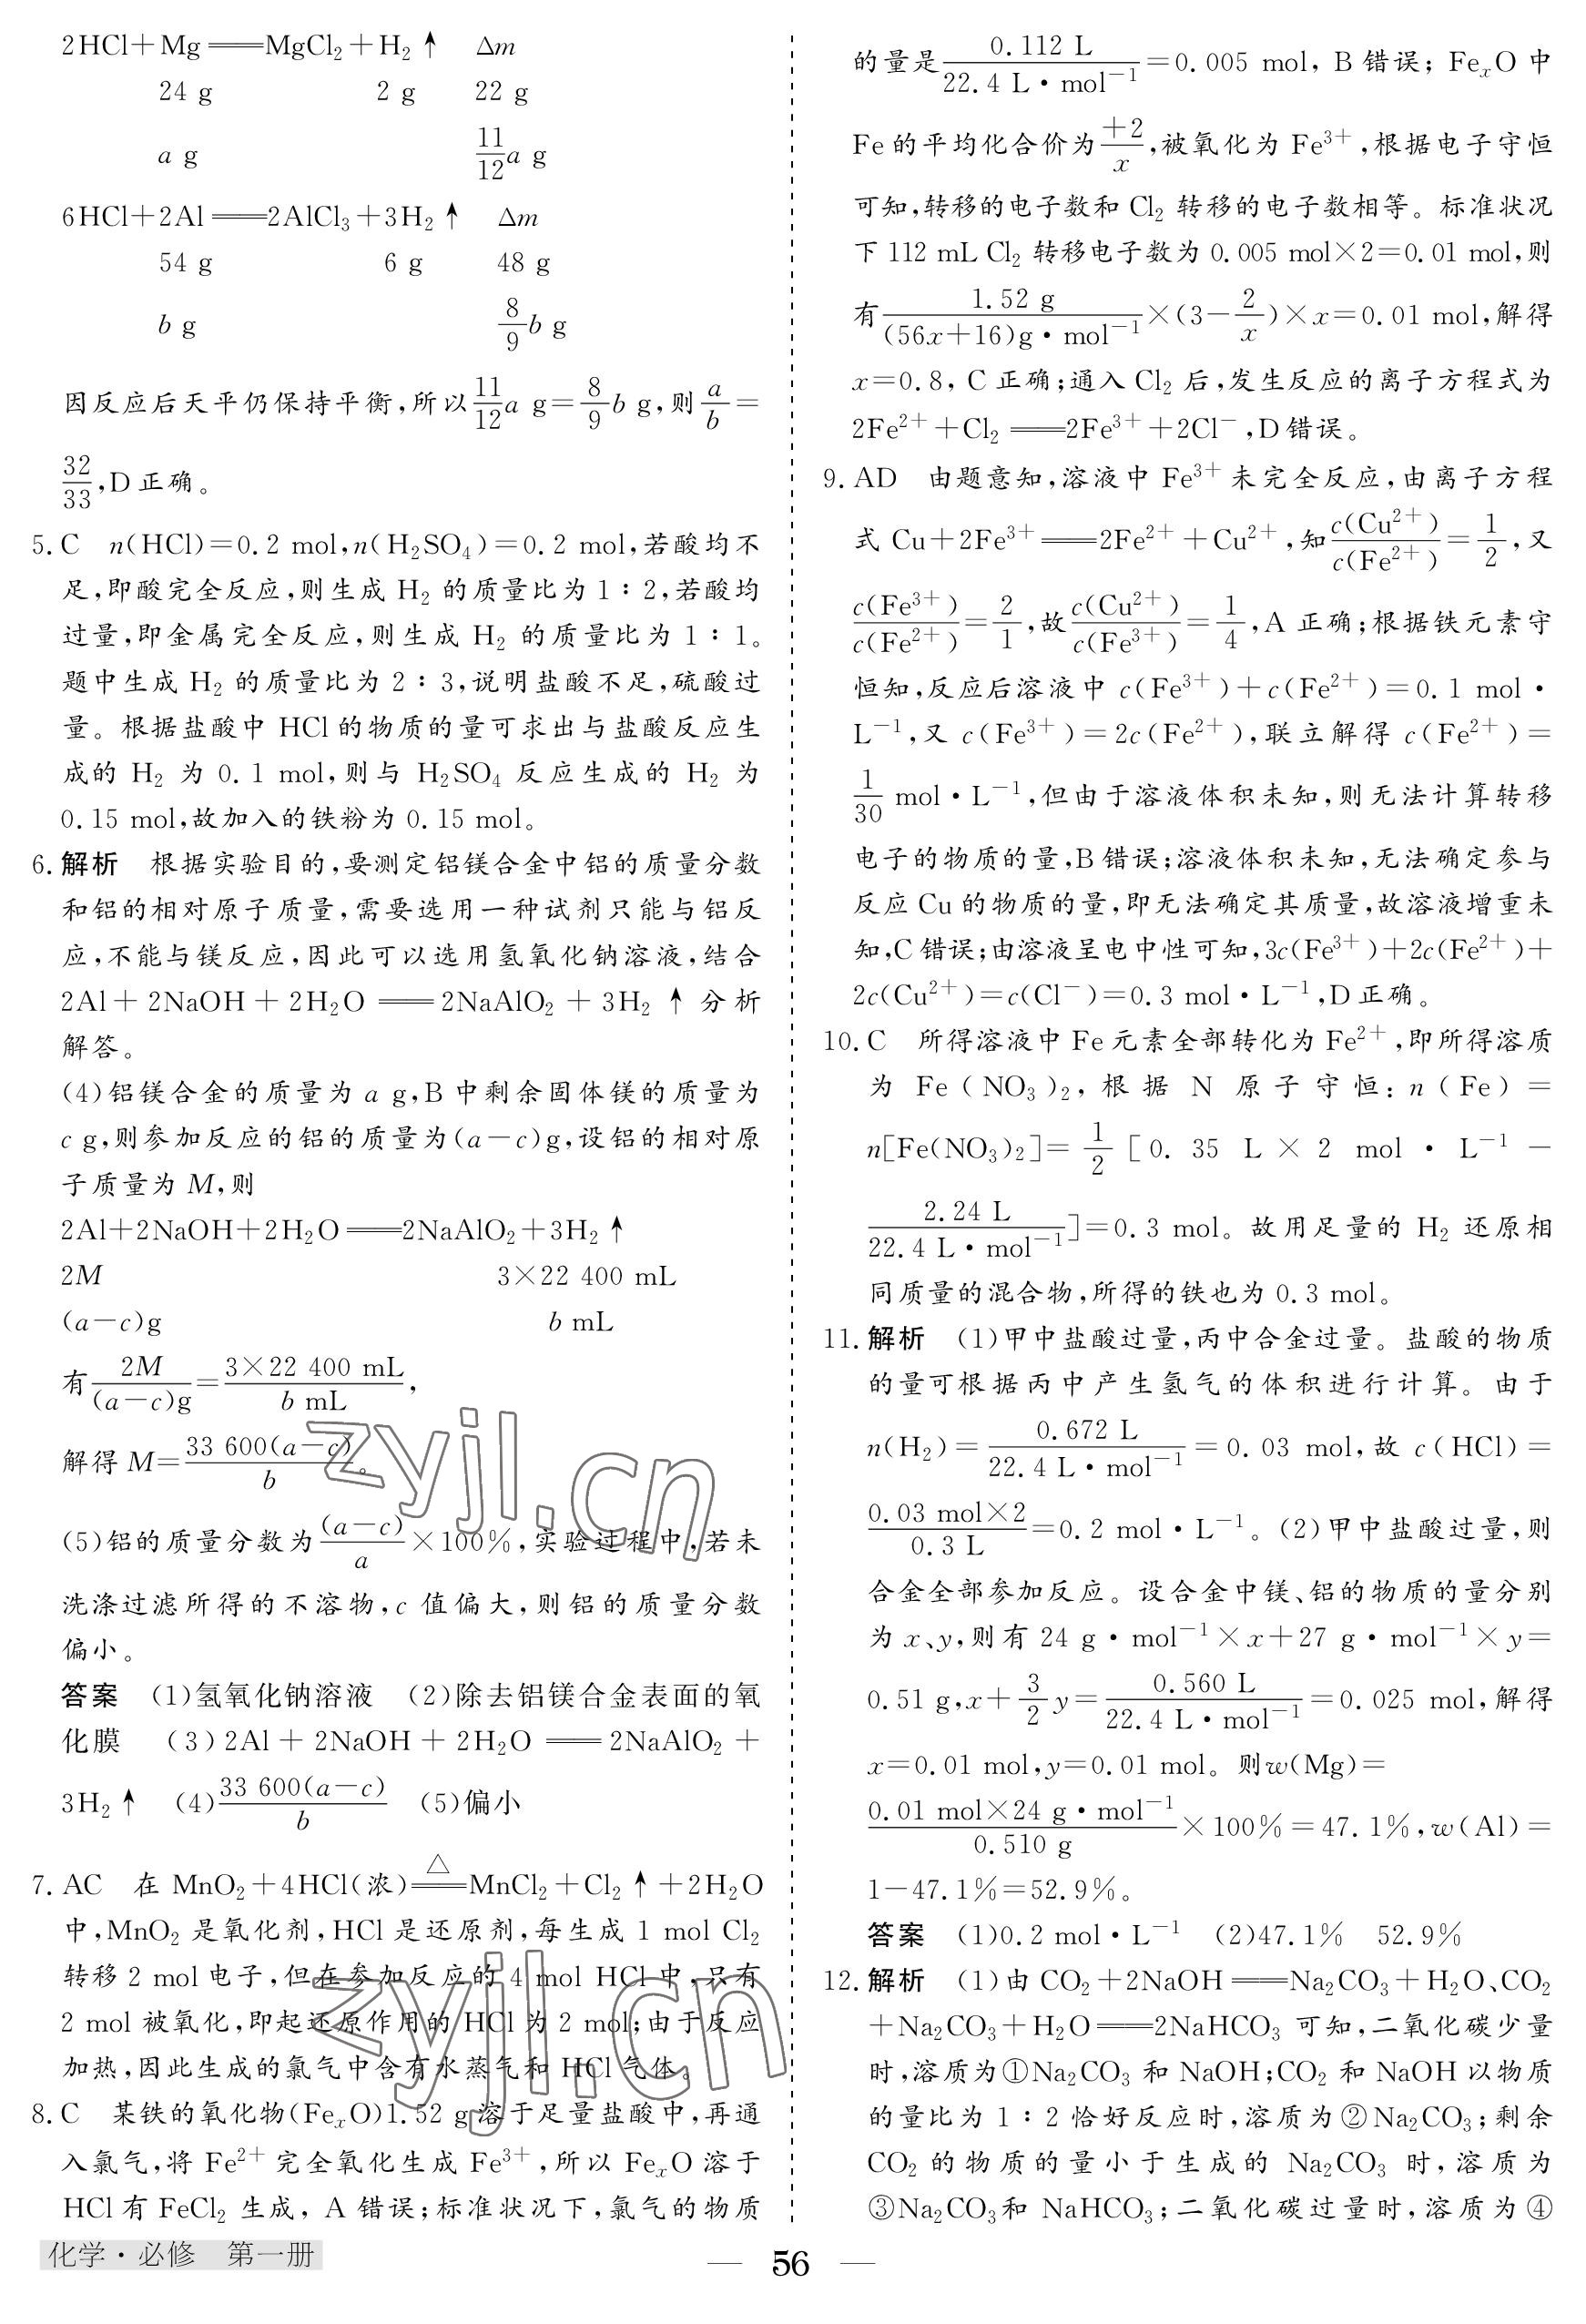 2HCl+Mg══MgCl₂+H₂↑ Δm
24 g 2 g 22 g
a g 11/12 a g
6HCl+2Al══2AlCl₃+3H₂↑ Δm
54 g 6 g 48 g
b g 8/9 b g
因反应后天平仍保持平衡,所以11/12 a g=8/9 b g,则a/b=
32/33,D正确。
5. C n(HCl)=0.2 mol,n(H₂SO₄)=0.2 mol,若酸均不
足,即酸完全反应,则生成 H₂ 的质量比为1∶2,若酸均
过量,即金属完全反应,则生成 H₂ 的质量比为1∶1。
题中生成 H₂ 的质量比为2∶3,说明盐酸不足,硫酸过
量。根据盐酸中 HCl的物质的量可求出与盐酸反应生
成的 H₂ 为 0.1 mol,则与 H₂SO₄ 反应生成的 H₂ 为
0.15 mol,故加入的铁粉为0.15 mol。
6. 解析 根据实验目的,要测定铝镁合金中铝的质量分数
和铝的相对原子质量,需要选用一种试剂只能与铝反
应,不能与镁反应,因此可以选用氢氧化钠溶液,结合
2Al+2NaOH+2H₂O══2NaAlO₂+3H₂↑分析
解答。
(4)铝镁合金的质量为 a g,B中剩余固体镁的质量为
c g,则参加反应的铝的质量为(a-c)g,设铝的相对原
子质量为 M,则
2Al+2NaOH+2H₂O══2NaAlO₂+3H₂↑
2M 3×22 400 mL
(a-c)g b mL
有2M/(a-c)g=3×22 400 mL/b mL,
解得M=33 600(a-c)/b。
(5)铝的质量分数为(a-c)/a×100%,实验过程中,若未
洗涤过滤所得的不溶物,c 值偏大,则铝的质量分数
偏小。
答案 (1)氢氧化钠溶液 (2)除去铝镁合金表面的氧
化膜 (3)2Al+2NaOH+2H₂O══2NaAlO₂+
3H₂↑ (4)33 600(a-c)/b (5)偏小
7. AC 在 MnO₂+4HCl(浓)≜MnCl₂+Cl₂↑+2H₂O
中,MnO₂ 是氧化剂,HCl是还原剂,每生成1 mol Cl₂
转移2 mol电子,但在参加反应的4 mol HCl中,只有
2 mol被氧化,即起还原作用的 HCl为2 mol;由于反应
加热,因此生成的氯气中含有水蒸气和 HCl气体。
8. C 某铁的氧化物(FeₓO)1.52 g溶于足量盐酸中,再通
入氯气,将 Fe²⁺ 完全氧化生成 Fe³⁺,所以 FeₓO 溶于
HCl有 FeCl₂ 生成,A错误;标准状况下,氯气的物质
化学·必修 第一册
的量是0.112 L/22.4 L·mol⁻¹=0.005 mol,B错误;FeₓO中
Fe的平均化合价为+2/x,被氧化为Fe³⁺,根据电子守恒
可知,转移的电子数和Cl₂ 转移的电子数相等。标准状况
下112 mL Cl₂ 转移电子数为0.005 mol×2=0.01 mol,则
有1.52 g/(56x+16)g·mol⁻¹×(3-2/x)×x=0.01 mol,解得
x=0.8,C正确;通入Cl₂ 后,发生反应的离子方程式为
2Fe²⁺+Cl₂══2Fe³⁺+2Cl⁻,D错误。
9. AD 由题意知,溶液中 Fe³⁺ 未完全反应,由离子方程
式 Cu+2Fe³⁺══2Fe²⁺+Cu²⁺,知c(Cu²⁺)/c(Fe²⁺)=1/2,又
c(Fe³⁺)/c(Fe²⁺)=2/1,故c(Cu²⁺)/c(Fe³⁺)=1/4,A正确;根据铁元素守
恒知,反应后溶液中 c(Fe³⁺)+c(Fe²⁺)=0.1 mol·
L⁻¹,又 c(Fe³⁺)=2c(Fe²⁺),联立解得 c(Fe²⁺)=
1/30 mol·L⁻¹,但由于溶液体积未知,则无法计算转移
电子的物质的量,B错误;溶液体积未知,无法确定参与
反应Cu的物质的量,即无法确定其质量,故溶液增重未
知,C错误;由溶液呈电中性可知,3c(Fe³⁺)+2c(Fe²⁺)+
2c(Cu²⁺)=c(Cl⁻)=0.3 mol·L⁻¹,D正确。
10. C 所得溶液中Fe元素全部转化为Fe²⁺,即所得溶质
为 Fe(NO₃)₂,根据 N 原子守恒:n(Fe)=
n[Fe(NO₃)₂]=1/2[0.35 L×2 mol·L⁻¹-
2.24 L/22.4 L·mol⁻¹]=0.3 mol。故用足量的 H₂ 还原相
同质量的混合物,所得的铁也为0.3 mol。
11. 解析 (1)甲中盐酸过量,丙中合金过量。盐酸的物质
的量可根据丙中产生氢气的体积进行计算。由于
n(H₂)=0.672 L/22.4 L·mol⁻¹=0.03 mol,故 c(HCl)=
0.03 mol×2/0.3 L=0.2 mol·L⁻¹。(2)甲中盐酸过量,则
合金全部参加反应。设合金中镁、铝的物质的量分别
为 x、y,则有 24 g·mol⁻¹×x+27 g·mol⁻¹×y=
0.51 g,x+3/2 y=0.560 L/22.4 L·mol⁻¹=0.025 mol,解得
x=0.01 mol,y=0.01 mol。则w(Mg)=
0.01 mol×24 g·mol⁻¹/0.510 g×100%=47.1%,w(Al)=
1-47.1%=52.9%。
答案 (1)0.2 mol·L⁻¹ (2)47.1% 52.9%
12. 解析 (1)由 CO₂+2NaOH══Na₂CO₃+H₂O、CO₂
+Na₂CO₃+H₂O══2NaHCO₃ 可知,二氧化碳少量
时,溶质为①Na₂CO₃ 和 NaOH;CO₂ 和 NaOH以物质
的量比为1∶2恰好反应时,溶质为②Na₂CO₃;剩余
CO₂ 的物质的量小于生成的 Na₂CO₃ 时,溶质为
③Na₂CO₃和 NaHCO₃;二氧化碳过量时,溶质为④
— 56 —
zyjl.cn
zyjl.cn